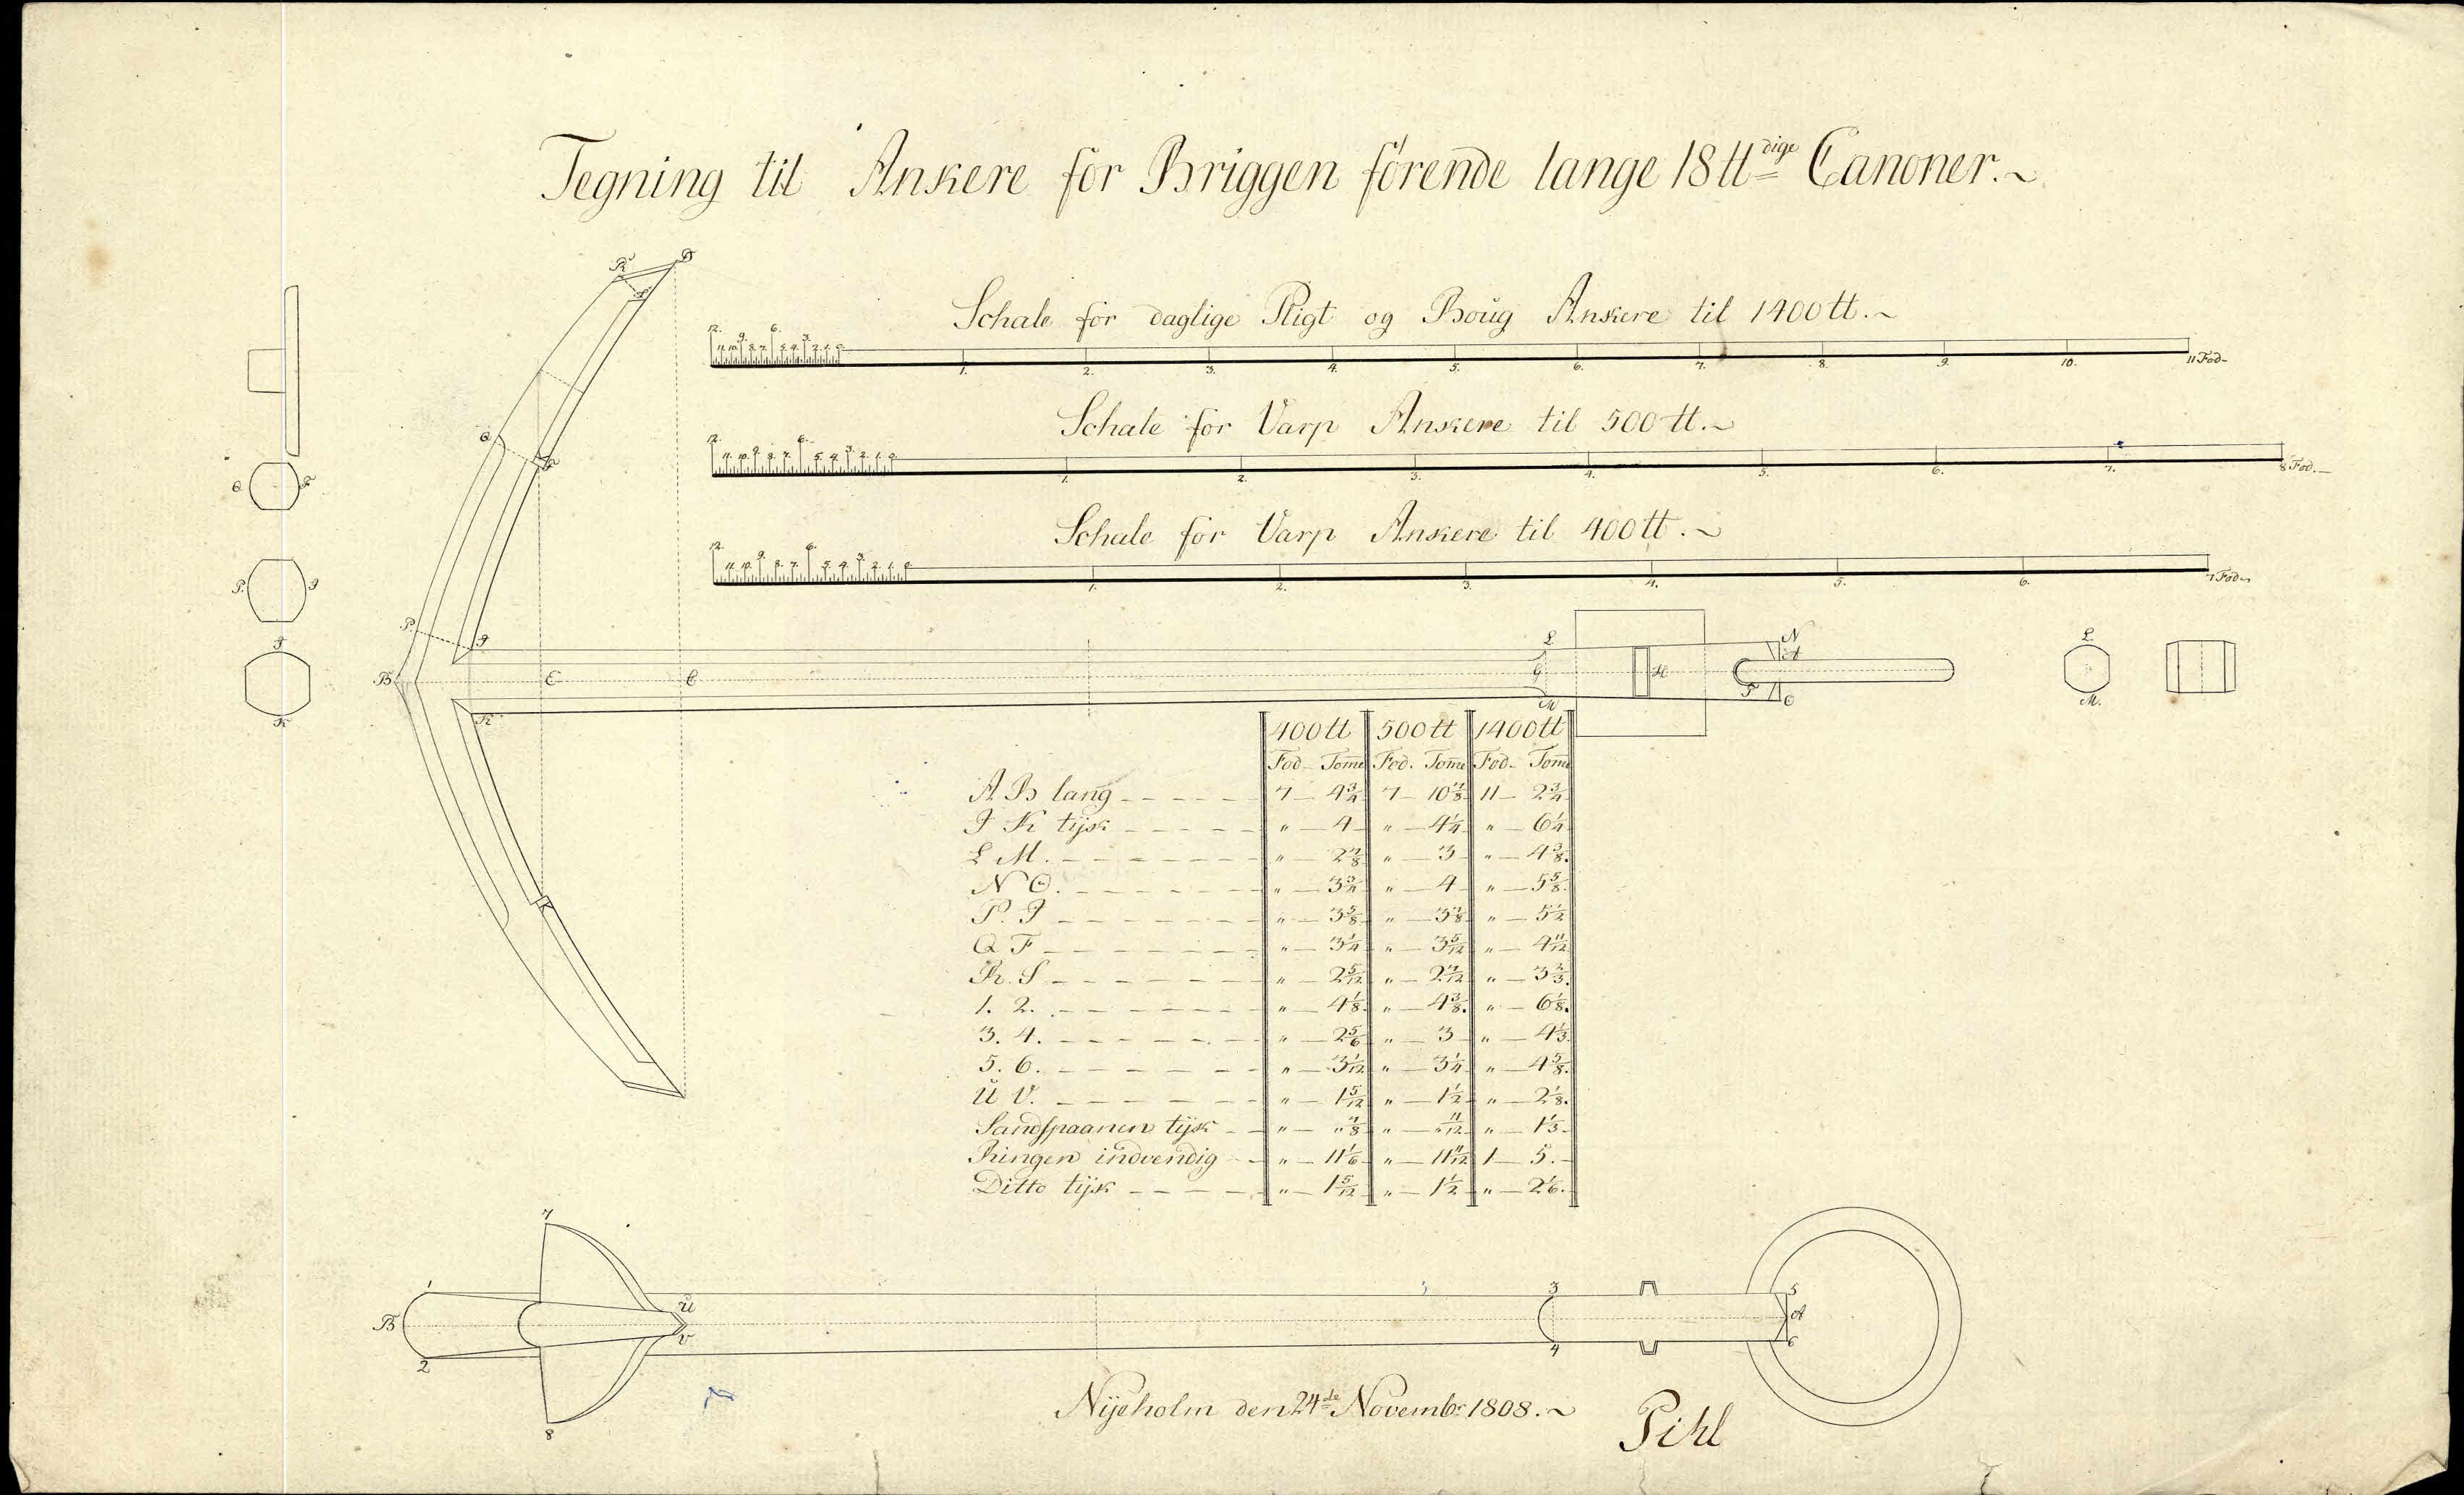 Tegning til Ankere for Briggen förende lange 18 ttdige Canoner.~
Schale for daglige Pligt og Boug Ankere til 1400 tt.~
12. 11. 10. 9. 8. 7. 6. 5. 4. 3. 2. 1. 0. 1. 2. 3. 4. 5. 6. 7. 8. 9. 10. 11 Fod
Schale for Varp Ankere til 500 tt.~
12. 11. 10. 9. 8. 7. 6. 5. 4. 3. 2. 1. 0. 1. 2. 3. 4. 5. 6. 7. 8 Fod.
Schale for Varp Ankere til 400 tt.~
12. 11. 10. 9. 8. 7. 6. 5. 4. 3. 2. 1. 0. 1. 2. 3. 4. 5. 6. 7 Fod
R D
S
Q F
Q F
P. I
P. I
I
K
B E C
K
L
G
M
H
N
A
T O
L
M.
400 tt 500 tt 1400 tt
Fod Tome Fod. Tome Fod Tome
A B lang 7 4 3/4 7 10 7/8 11 2 3/4
I K tijk " 4 " 4 1/4 " 6 1/4
L M. " 2 7/8 " 3 " 4 3/8.
N O. " 3 3/4 " 4 " 5 5/8.
P. I " 3 5/8 " 3 7/8 " 5 1/2
Q F " 3 1/4 " 3 5/12 " 4 11/12
R. S " 2 5/12 " 2 7/12 " 3 2/3.
1. 2. " 4 1/8. " 4 3/8. " 6 1/8.
3. 4. " 2 5/6 " 3 " 4 1/3.
5. 6. " 3 1/12 " 3 1/4 " 4 5/8.
U V. " 1 5/12 " 1 1/2 " 2 1/8.
Sandspaanen tijk " " 7/8 " " 11/12 " 1 1/3
Ringen indvendig " 11 1/6 " 11 11/12 1 5.
Ditto tijk " 1 5/12 " 1 1/2 " 2 1/6.
7
1
B
2
U
V
8
3
4
5
A
6
Nyeholm den 24de Novembr 1808.~
Pihl